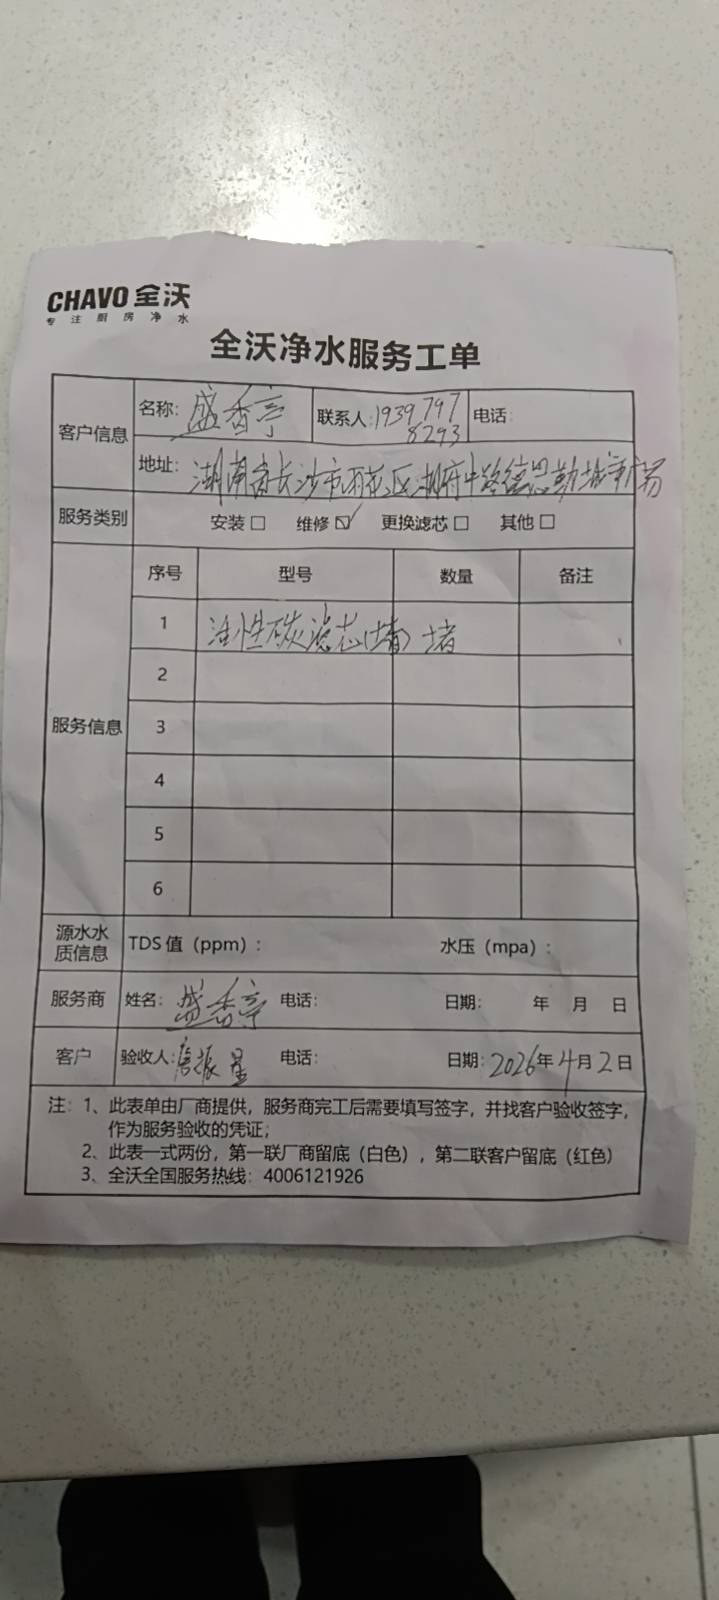 CHAVO 全沃
专注厨房净水
全沃净水服务工单
客户信息
名称: 盛香亭 联系人: 1939797 8293 电话:
地址: 湖南省长沙市雨花区湖府中路德思勤城市广场
服务类别 安装□ 维修☑ 更换滤芯□ 其他□
服务信息
序号 型号 数量 备注
1 活性碳滤芯(堵) 堵
2
3
4
5
6
源水水质信息 TDS 值（ppm）: 水压（mpa）:
服务商 姓名: 盛香亭 电话: 日期: 年 月 日
客户 验收人: 振星 电话: 日期: 2026年4月2日
注: 1、此表单由厂商提供，服务商完工后需要填写签字，并找客户验收签字，
作为服务验收的凭证；
2、此表一式两份，第一联厂商留底（白色），第二联客户留底（红色）
3、全沃全国服务热线: 4006121926